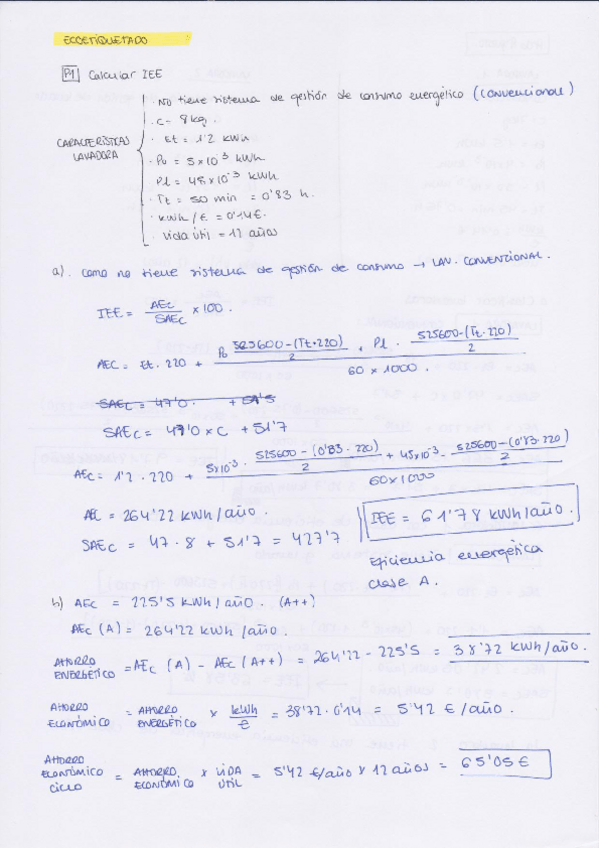 ECOETIQUETADO
P1 Calcular IEE
CARACTERÍSTICAS LAVADORA
· No tiene sistema de gestión de consumo energético (CONVENCIONAL)
· c = 8 kg.
· Et = 1'2 kWh
· Po = 5x10⁻³ kWh
Pl = 45x10⁻³ kWh
· Tt = 50 min = 0'83 h.
· kWh/€ = 0'14€.
· Vida útil = 12 años
a). Como no tiene sistema de gestión de consumo → LAV. CONVENCIONAL.
IEE = AEc / SAEc x 100.
AEC = Et. 220 + (Po · (525600-(Tt·220)) / 2 + Pl · (525600-(Tt·220)) / 2) / 60 x 1000.
SAEc = 47'0 · + 51'5
SAEc = 47'0 x C + 51'7
AEc = 1'2 · 220 + (5x10⁻³ · (525600-(0'83·220)) / 2 + 45x10⁻³ · (525600-(0'83·220)) / 2) / 60x1000
AEc = 264'22 kWh/año.
SAEc = 47·8 + 51'7 = 427'7
IEE = 61'78 kWh/año.
Eficiencia energética
clase A.
b) AEc = 225'5 kWh/año. (A++)
AEc (A) = 264'22 kWh/año.
AHORRO ENERGÉTICO = AEc (A) - AEc (A++) = 264'22 - 225'5 = 38'72 kWh/año.
AHORRO ECONÓMICO = AHORRO ENERGÉTICO x kWh/€ = 38'72 · 0'14 = 5'42 €/año.
AHORRO ECONÓMICO CICLO = AHORRO ECONÓMICO x VIDA ÚTIL = 5'42 €/año x 12 años = 65'05 €